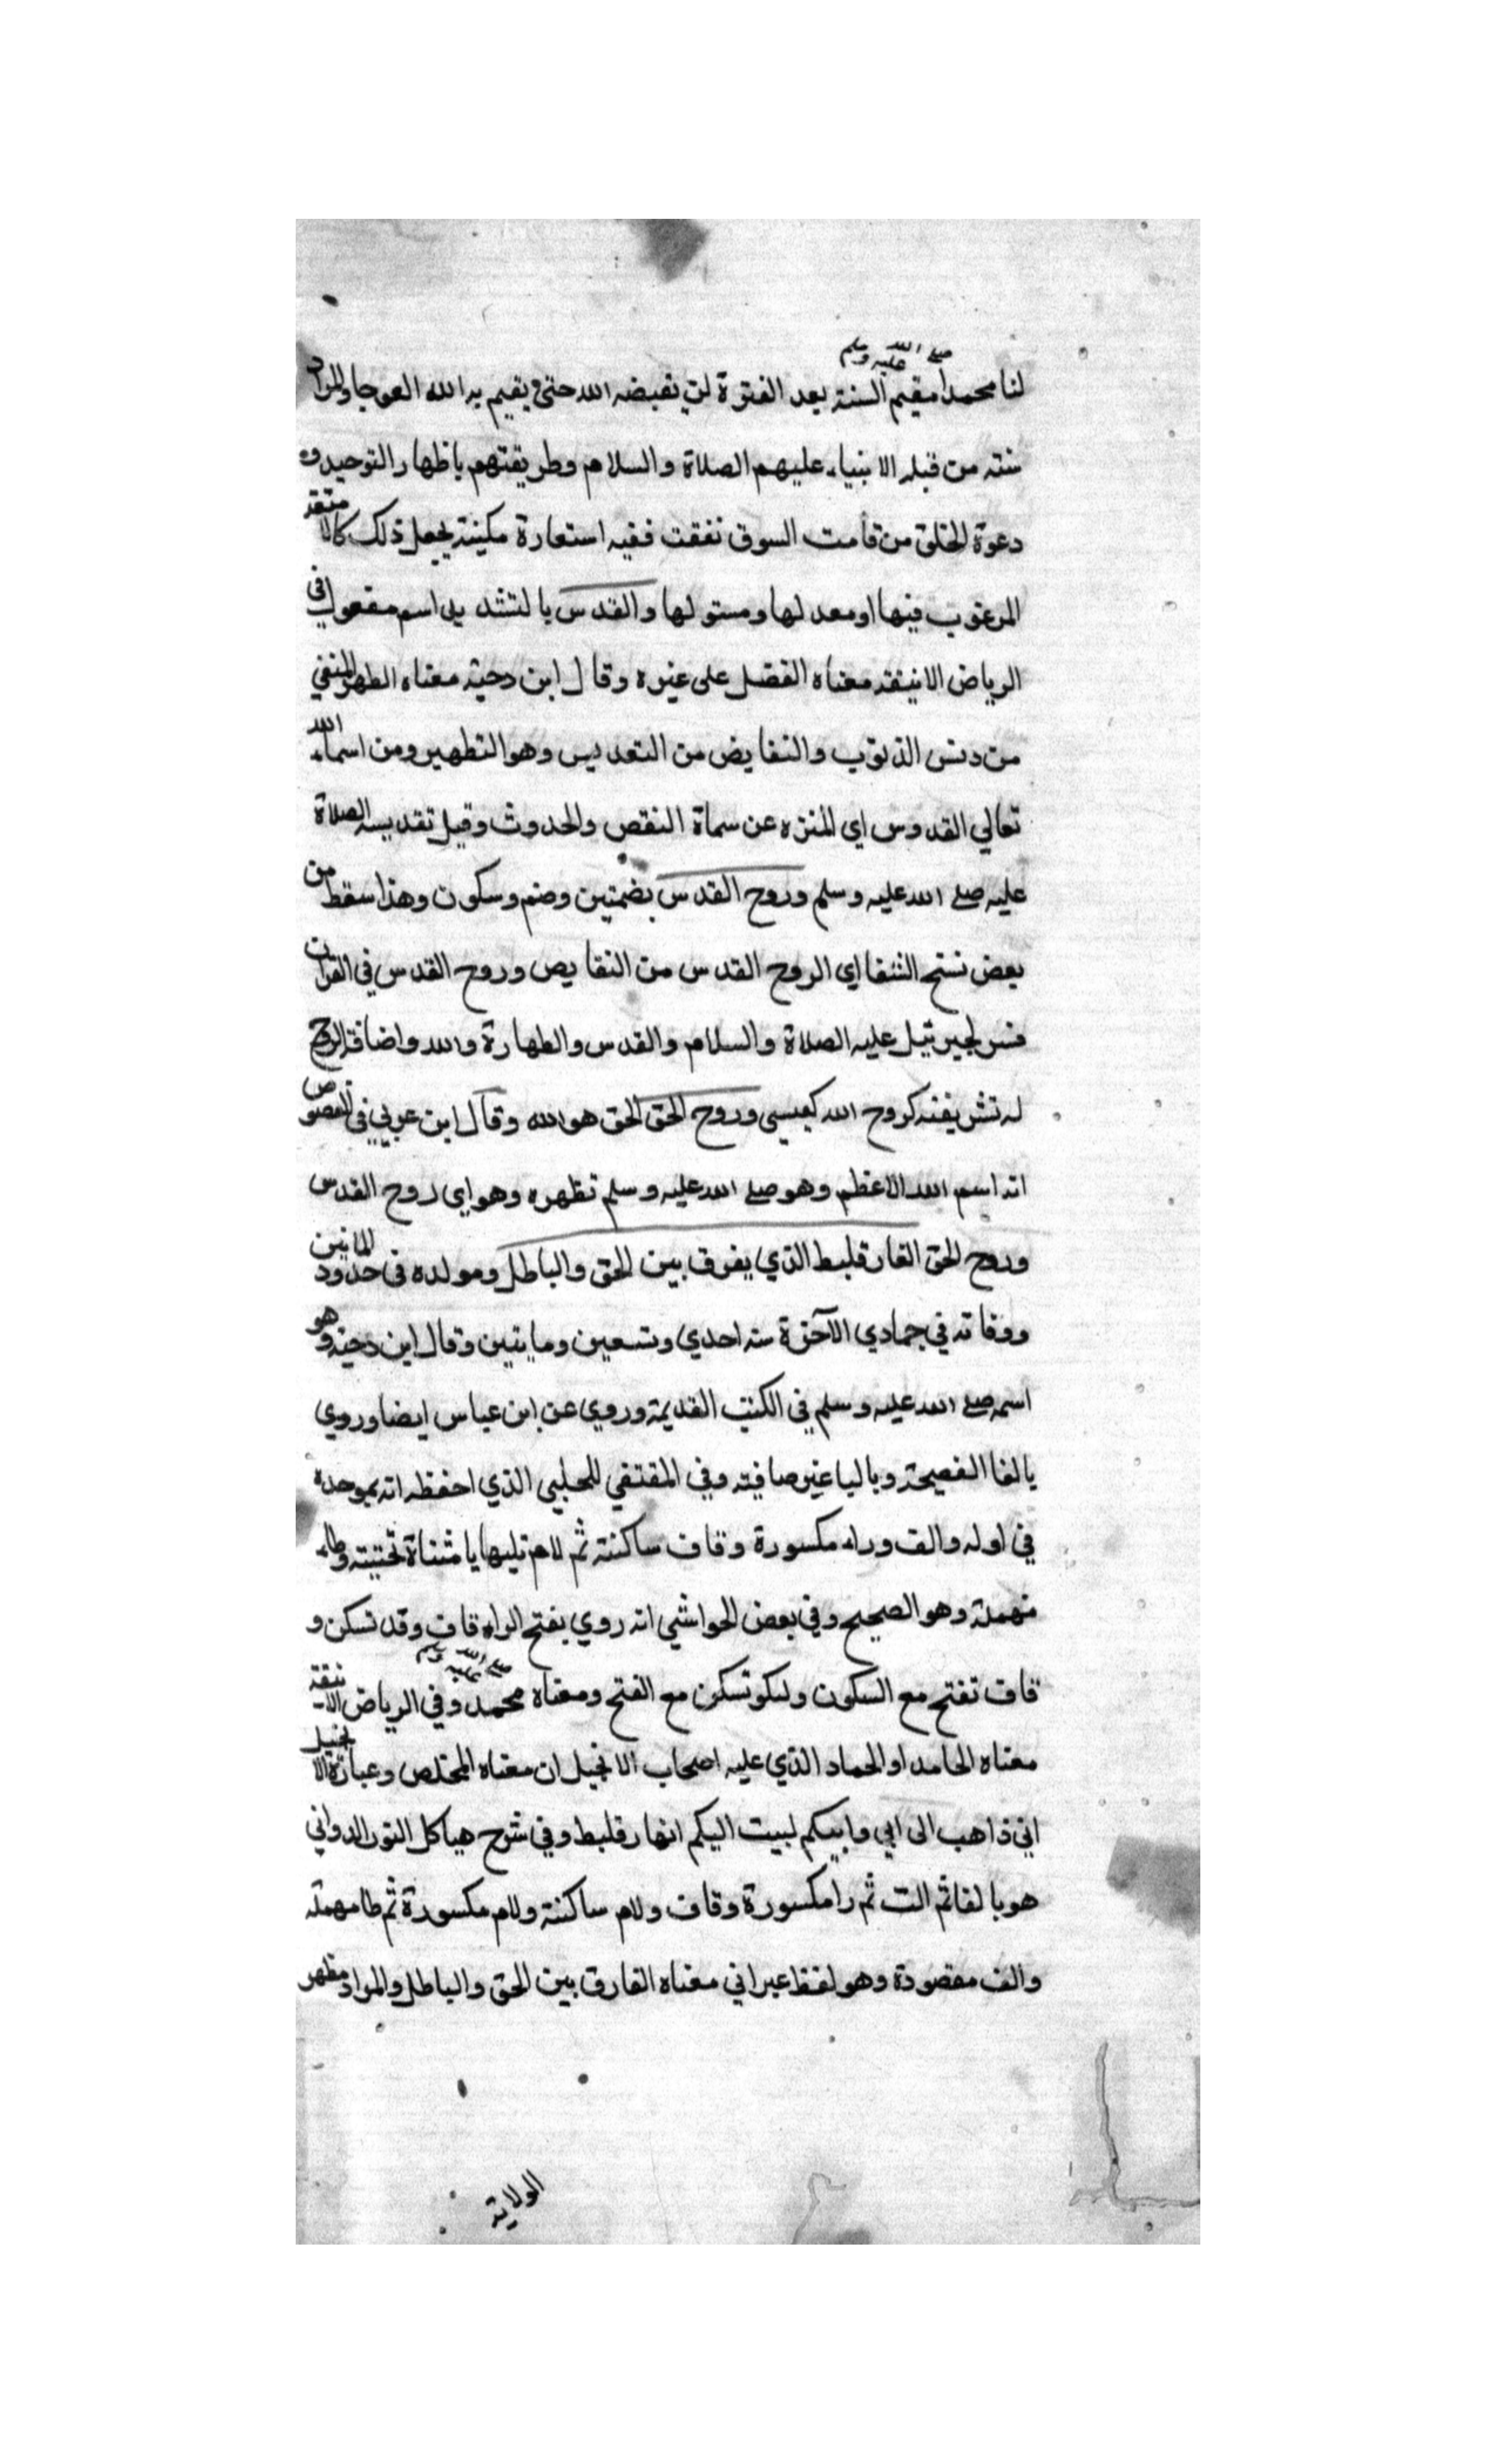 لنا محمدا صلى الله عليه وسلم مقيم السنة بعد الفترة لن نقبضه الله حتى يقيم به الله العوجا والمراد
سنته من قبله الانبياء عليهم الصلاة والسلام وطريقتهم باظهار التوحيد و
دعوة الخلق من قامت السوق نفقت ففيه استعارة مكينة بجعل ذلك كالا متعة
المرغوب فيها او معد لها ومستو لها والقدس بالتشديد اسم مفعول في
الرياض الانيقة معناه الفضل على غيره وقال ابن دحية معناه الطهر المنقي
من دنس الذنوب والنقايض من التقديس وهو التطهير ومن اسماء الله
تعالي القدوس اي المنزه عن سماة النقص والحدوث وقيل تقديسه الصلاة
عليه صلى الله عليه وسلم وروح القدس بضمتين وضم وسكون وهذا سقط من
بعض نسخ الشفا اي الروح القدس من النقايص وروح القدس في القران
فسر لجبرئيل عليه الصلاة والسلام والقدس والطهارة والله واضافة الروح
له تشريفة كروح الله كعيسى وروح الحق الحق هو الله وقال ابن عربي في الفصوص
انه اسم الله الاعظم وهو صلى الله عليه وسلم تظهره وهو اي روح القدس
وروح الحق الفارقليط الذي يفرق بين الحق والباطل ومولده في حدود المايتين
ووفاته في جمادي الآخرة سنه احدي وتسعين ومايتين وقال ابن دحية وهو
اسمه صلى الله عليه وسلم في الكتب القديمة وروي عن ابن عباس ايضا وروي
بالفا الفصيحة وبالبا غير صافية وفي المقتفي للحلبي الذي احفظه انه بموحدة
في اوله والف وراء مكسورة وقاف ساكنة ثم لام تليها يا مثناة تحتيته وطاء
مهملة وهو الصحيح وفي بعض الحواشي انه روي بفتح الراء قاف وقد تسكن و
قاف تفتح مع السكون وتسكن مع الفتح ومعناه محمد صلى الله عليه وسلم وفي الرياض الانيقة
معناه الحامد او الحماد الذي عليه اصحاب الانجيل ان معناه المخلص وعبارة الانجيل
اني ذاهب الى ابي وابيكم لبيت اليكم انهارقليط وفي شرح هياكل النور الدواني
هو بالفا ثم الت ثم را مكسورة وقاف ولام ساكنة ولام مكسورة ثم طا مهملة
والف مقصودة وهو لفظ عبراني معناه الفارق بين الحق والباطل والمراد مظهر
الولاية